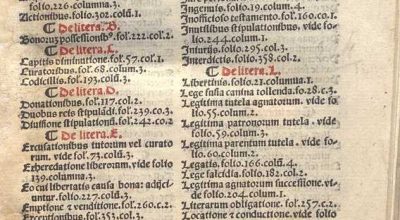 folio.226.columna.3.
Actionibus.folio.302.colū.1.
De litera.B.
Bonorum possessionibꝰ.fol.222.col.2.
De litera.C.
Capitis diminutione.fol.57.col.1.
Curatoribus.fol.68.colum.3.
Codicillis.fol.193.colū.3.
De litera.D.
Donationibus.fol.117.col.2.
Duobus reis stipulādi.239.col.3.
Diuisione stipulationū.fol.242.co.2
De litera.E.
Excusationibus tutorum vel curato
rum.vide fol.73.colū.3.
Exheredatione liberorum.vide folio
139.columna.3.
Ex cui libertatis causa bona: adijciū
tur.folio.227.colum.3.
Emptione & venditione.fol.260.c.1.
Exceptionibus.fol.353.col.3.
Ingenuis.folio.19.colum.2.
Inofficioso testamento.fol.160.co.1.
Inutilibus stipulationibus.vide fo
lio.244.colum.1.
Iniuriis.folio.295.col.3.
Interdictis.folio.358.col.2.
De litera.L.
Libertinis.folio.21.columna.1.
Lege fusia canina tollenda.fo.28.c.3.
Legitima tutela agnatorum.vide fo
lio.55.colum.2.
Legitima patronorum tutela.vide
folio.59.colum.3.
Legitima parentum tutela.vide fo
lio.60.columna.2.
Legatis.folio.166.colū.4.
Lege falcidia.folio.182.col.2.
Legitima agnatorum successione.vi
de folio.204.colum.1.
Literarum obligatione.fol.257.c.2.
Locatione & conductione.vide folio